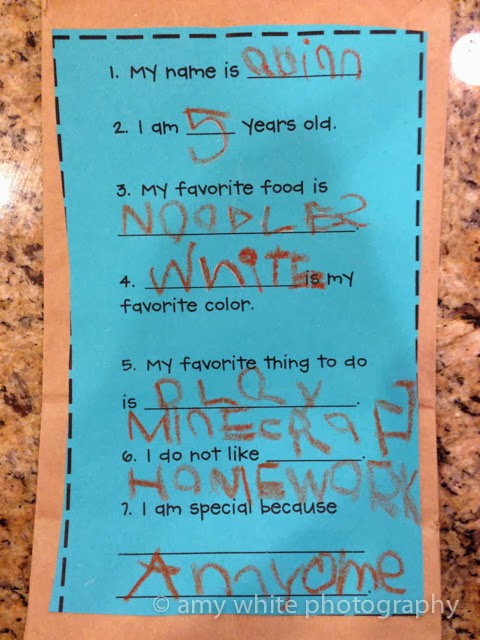 1. My name is Quinn
2. I am 5 years old.
3. My favorite food is
NOODLES
4. WhiTE is my
favorite color.
5. My favorite thing to do
is PLAY.
MINECRAFT
6. I do not like .
HOMEWORK
7. I am special because
Anayome.
© amy white photography